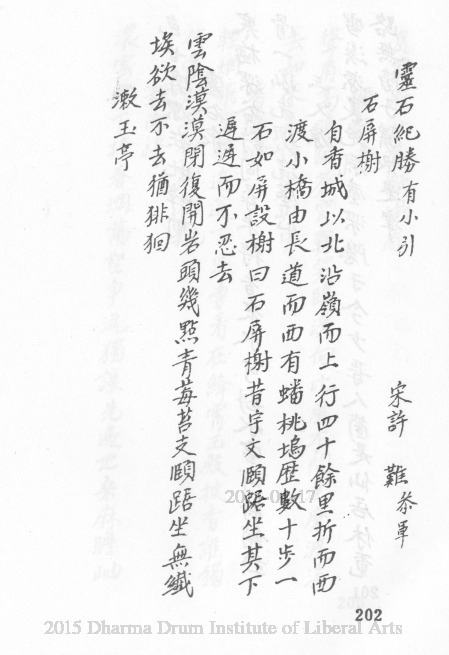 靈石紀勝有小引
宋許 難恭軍
石屏榭
自香城以北沿嶺而上行四十餘里折而西
渡小橋由長道而西有蟠桃塢歷數十步一
石如屏設榭曰石屏榭昔宇文頤踞坐其下
遲遲而不忍去
雲陰漠漠閉復開岩頭幾點青莓苔支頤踞坐無纖
埃欲去不去猶徘徊
漱玉亭
202
2015 Dharma Drum Institute of Liberal Arts